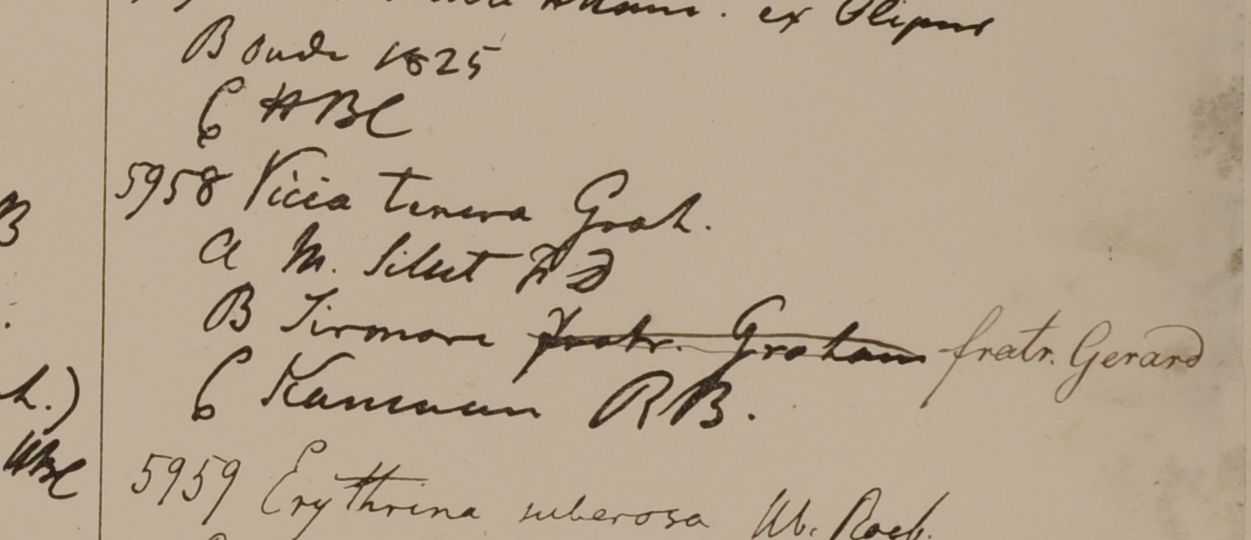 ex
B Oude 1825
C HBC
5958 Vicia tenera Grah.
a M. Silhet FD
B
B Sirmore fratr. Graham fratr. Gerard
C Kamaoun RB.
h.)
HBC
5959 Erythrina suberosa Hb. Roxb.